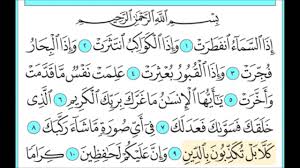 بِسْمِ اللَّهِ الرَّحْمَٰنِ الرَّحِيمِ
إِذَا السَّمَاءُ انْفَطَرَتْ ١ وَإِذَا الْكَوَاكِبُ انْتَثَرَتْ ٢ وَإِذَا الْبِحَارُ
فُجِّرَتْ ٣ وَإِذَا الْقُبُورُ بُعْثِرَتْ ٤ عَلِمَتْ نَفْسٌ مَّا قَدَّمَتْ
وَأَخَّرَتْ ٥ يَا أَيُّهَا الْإِنْسَانُ مَا غَرَّكَ بِرَبِّكَ الْكَرِيمِ ٦ الَّذِي
خَلَقَكَ فَسَوَّاكَ فَعَدَلَكَ ٧ فِي أَيِّ صُورَةٍ مَّا شَاءَ رَكَّبَكَ ٨
كَلَّا بَلْ تُكَذِّبُونَ بِالدِّينِ ٩ وَإِنَّ عَلَيْكُمْ لَحَافِظِينَ ١٠ كِرَامًا